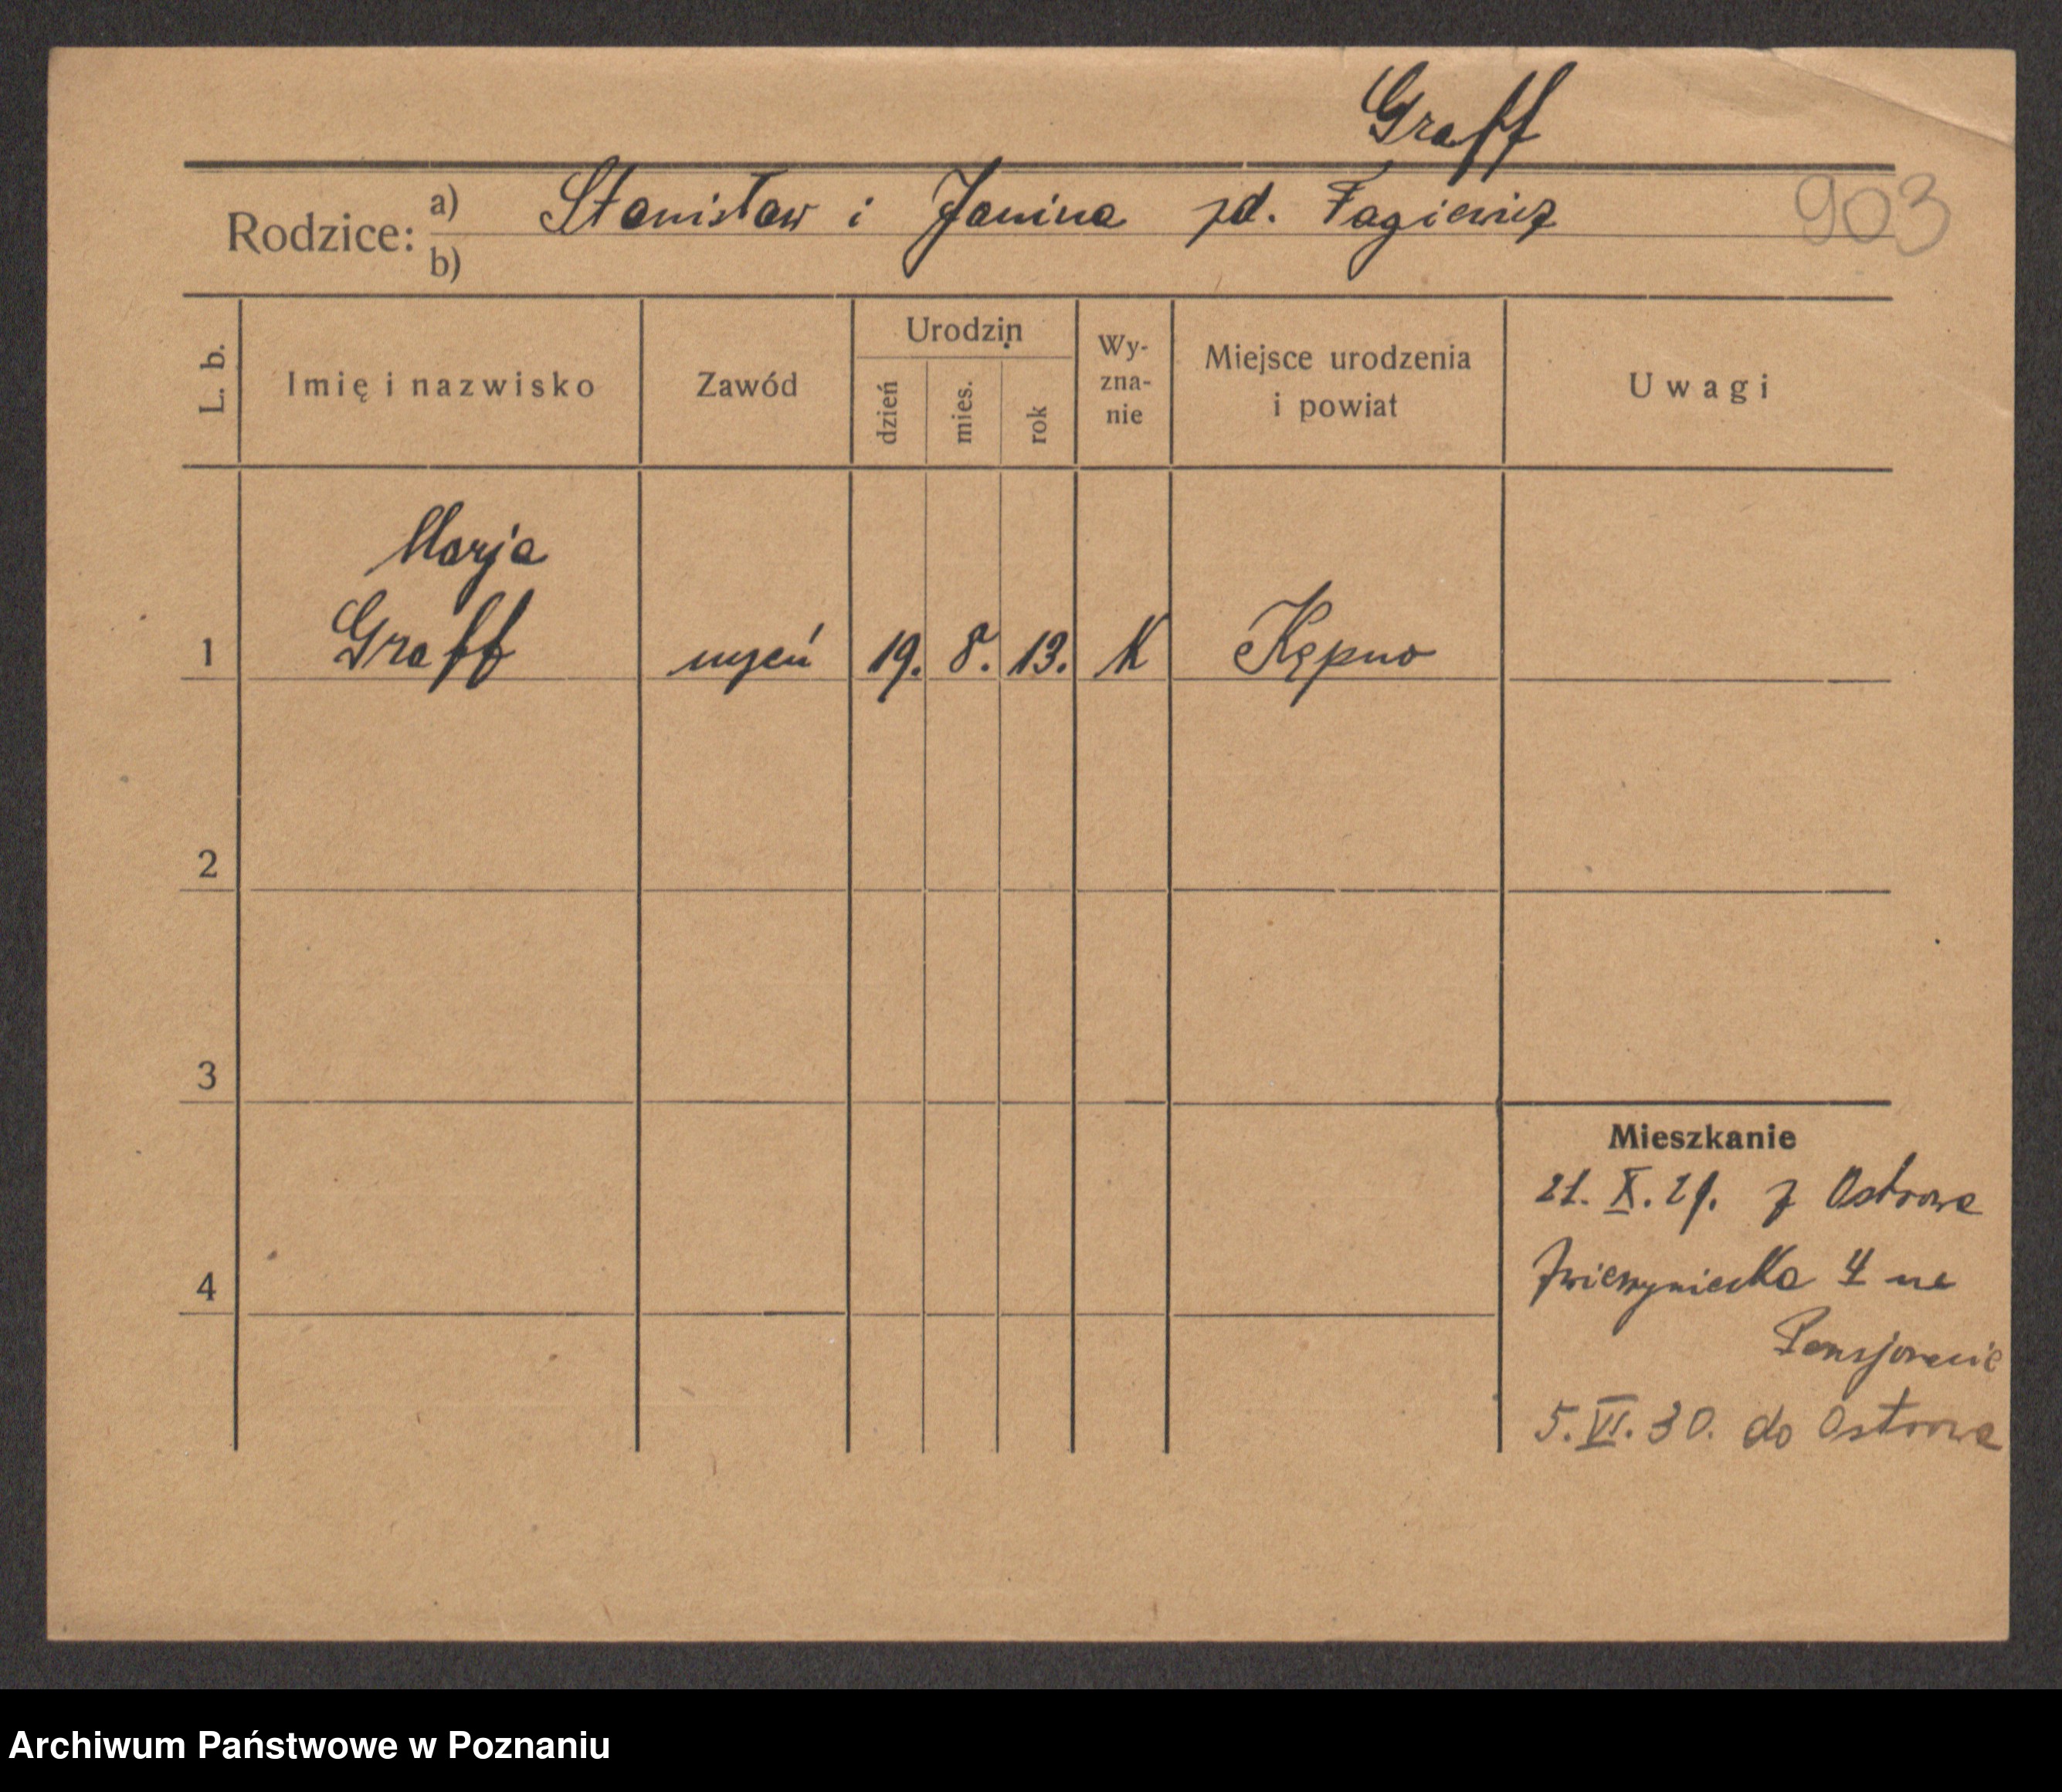 Graff
903
Rodzice: a) Stanisław i Janina zd. Fagiewicz
b)
L. b.
Imię i nazwisko
Zawód
Urodzin
dzień
mies.
rok
Wy-
zna-
nie
Miejsce urodzenia
i powiat
Uwagi
Marja
1 Graff uczeń 19. 8. 13. K Kępno
2
3
4
Mieszkanie
21. X. 29. z Ostrowa
Zwierzyniecka 4 na
Pensjonacie
5. VI. 30. do Ostrowa
Archiwum Państwowe w Poznaniu